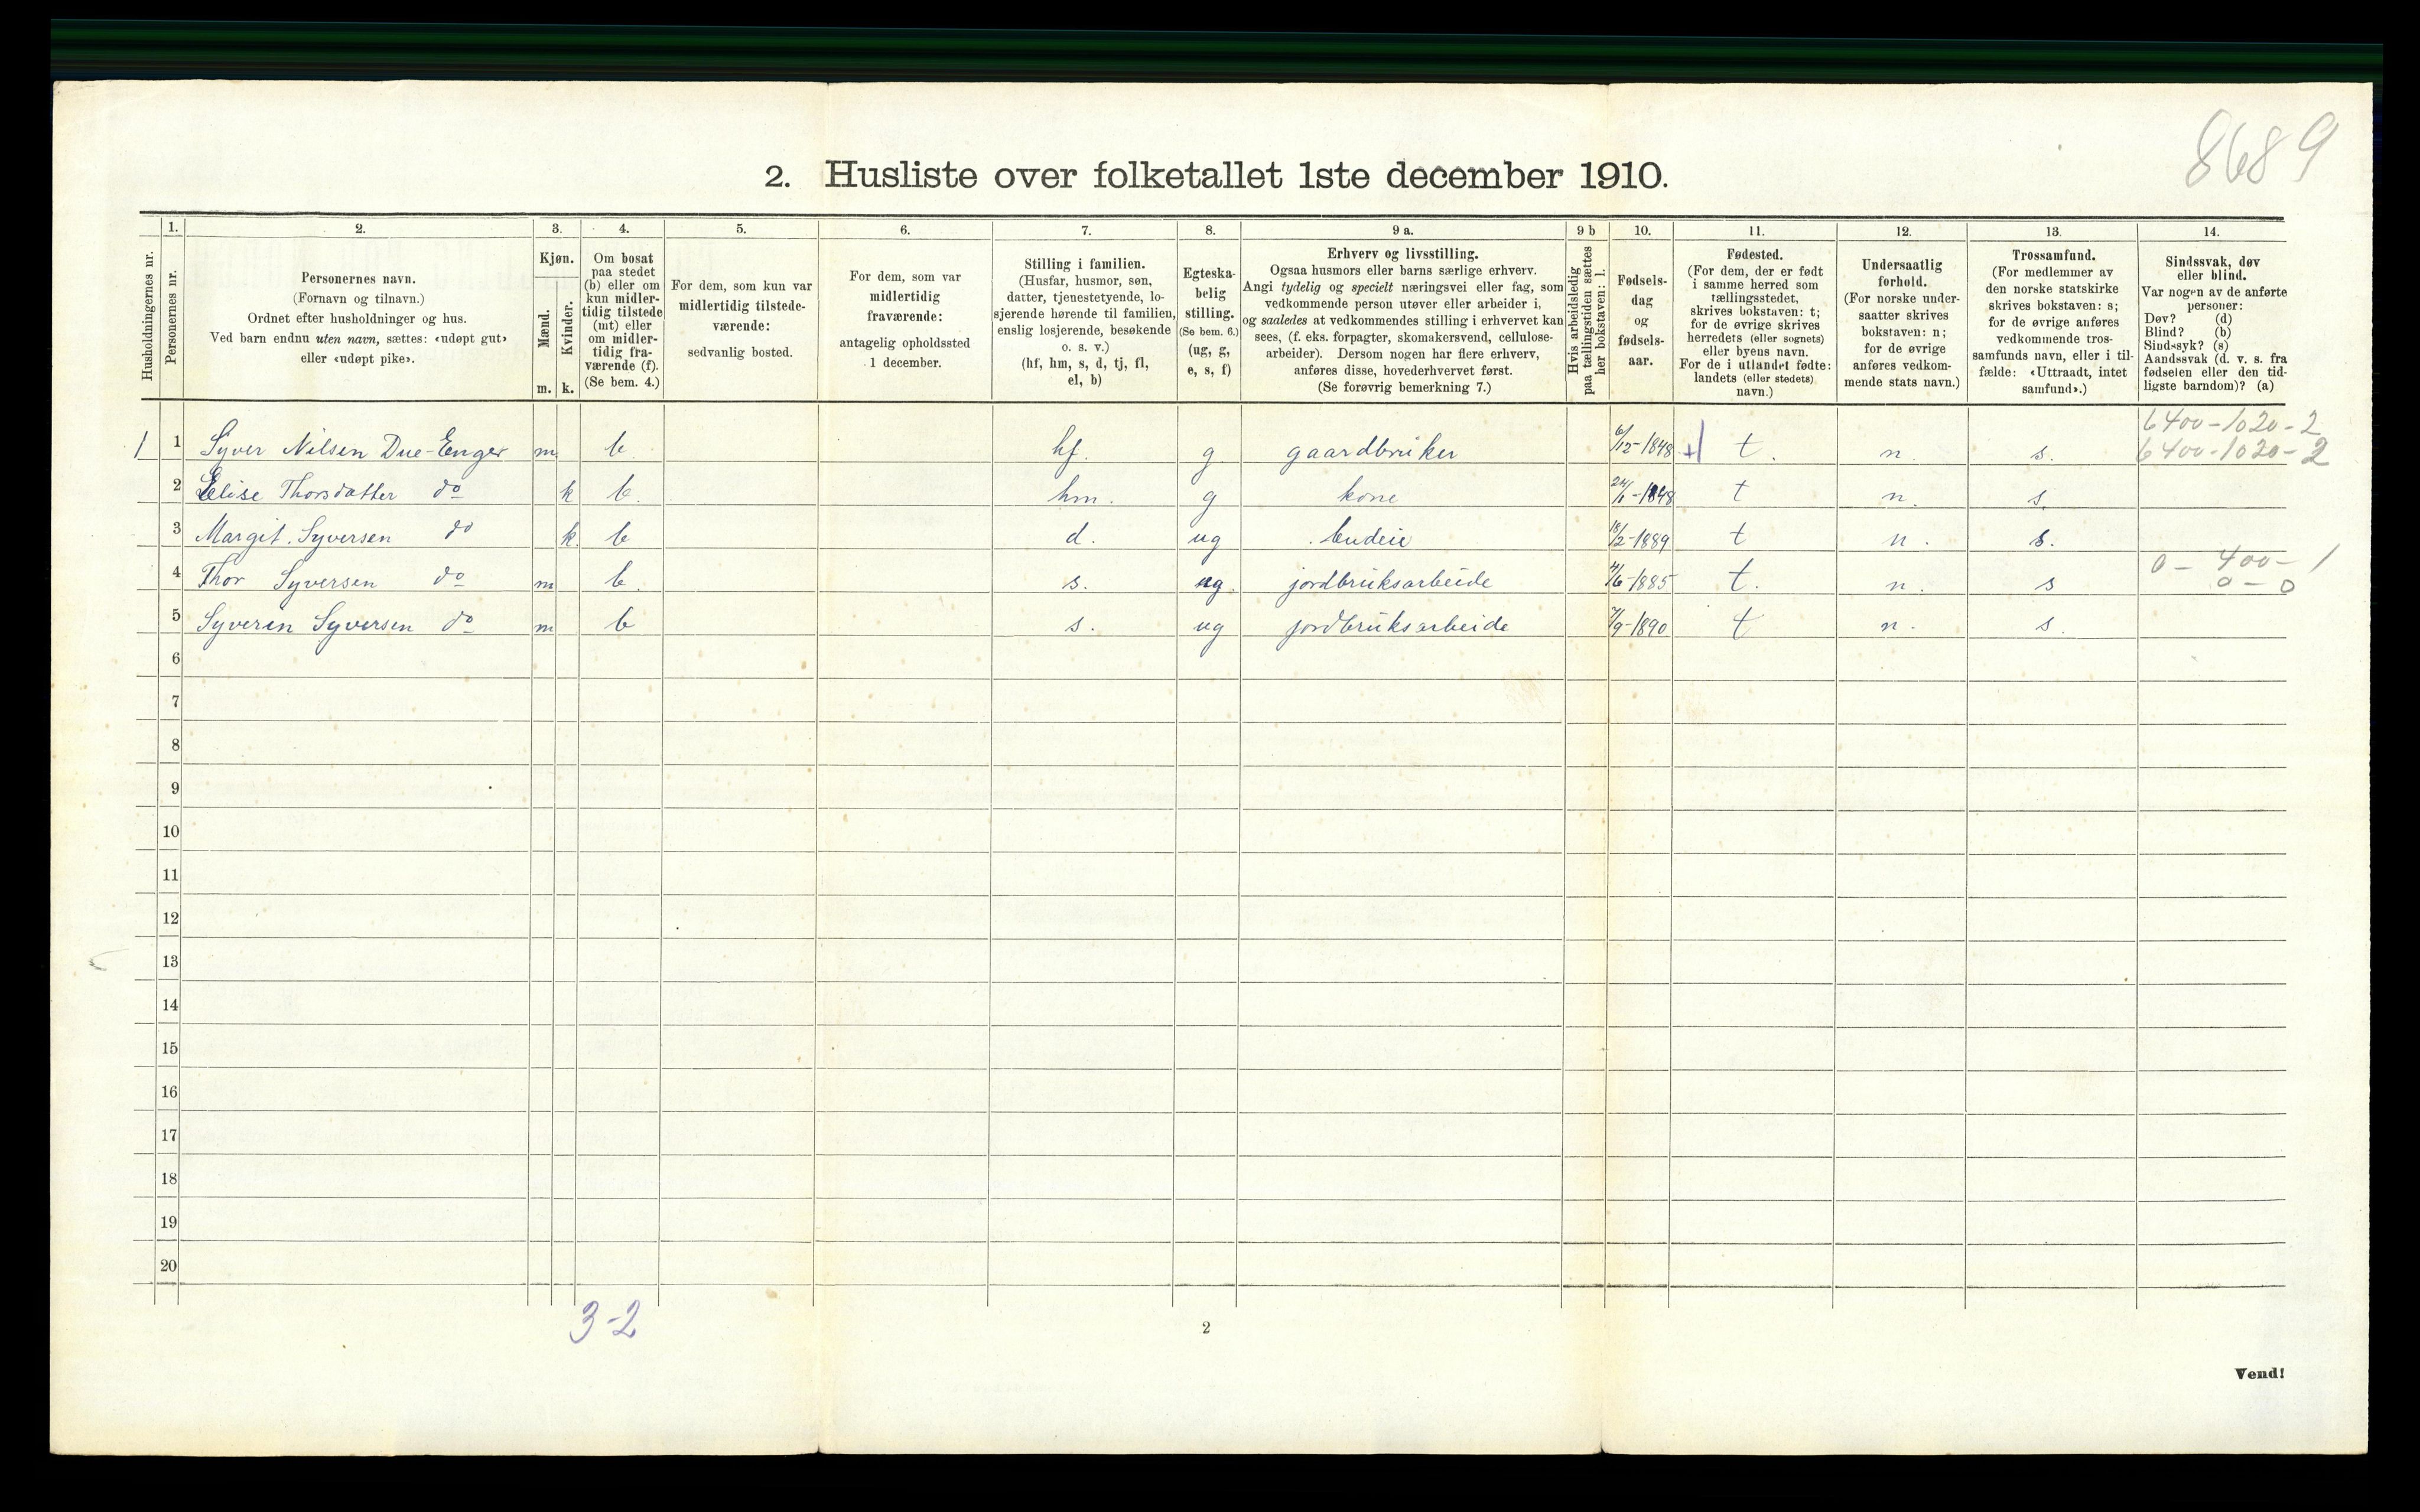 8689
2. Husliste over folketallet 1ste december 1910.
Husholdningernes nr.
1.
Personernes nr.
2.
Personernes navn.
(Fornavn og tilnavn.)
Ordnet efter husholdninger og hus.
Ved barn endnu uten navn, sættes: «udøpt gut»
eller «udøpt pike».
3.
Kjøn.
Mænd.
Kvinder.
m. k.
4.
Om bosat
paa stedet
(b) eller om
kun midler-
tidig tilstede
(mt) eller
om midler-
tidig fra-
værende (f).
(Se bem. 4.)
5.
For dem, som kun var
midlertidig tilstede-
værende:
sedvanlig bosted.
6.
For dem, som var
midlertidig
fraværende:
antagelig opholdssted
1 december.
7.
Stilling i familien.
(Husfar, husmor, søn,
datter, tjenestetyende, lo-
sjerende hørende til familien,
enslig losjerende, besøkende
o. s. v.)
(hf, hm, s, d, tj, fl,
el, b)
8.
Egteska-
belig
stilling.
(Se bem. 6.)
(ug, g,
e, s, f)
9 a.
Erhverv og livsstilling.
Ogsaa husmors eller barns særlige erhverv.
Angi tydelig og specielt næringsvei eller fag, som
vedkommende person utøver eller arbeider i,
og saaledes at vedkommendes stilling i erhvervet kan
sees, (f. eks. forpagter, skomakersvend, cellulose-
arbeider). Dersom nogen har flere erhverv,
anføres disse, hovederhvervet først.
(Se forøvrig bemerkning 7.)
9 b
Hvis arbeidsledig
paa tællingstiden sættes
her bokstaven: l.
10.
Fødsels-
dag
og
fødsels-
aar.
11.
Fødested.
(For dem, der er født
i samme herred som
tællingsstedet,
skrives bokstaven: t;
for de øvrige skrives
herredets (eller sognets)
eller byens navn.
For de i utlandet fødte:
landets (eller stedets)
navn.)
12.
Undersaatlig
forhold.
(For norske under-
saatter skrives
bokstaven: n;
for de øvrige
anføres vedkom-
mende stats navn.)
13.
Trossamfund.
(For medlemmer av
den norske statskirke
skrives bokstaven: s;
for de øvrige anføres
vedkommende tros-
samfunds navn, eller i til-
fælde: «Uttraadt, intet
samfund».)
14.
Sindssvak, døv
eller blind.
Var nogen av de anførte
personer:
Døv? (d)
Blind? (b)
Sindssyk? (s)
Aandssvak (d. v. s. fra
fødselen eller den tid-
ligste barndom)? (a)
6400-1020-2
1 1 Syver Nilsen Due-Enger m b hf. g gaardbruker 6/12-1848 t. n. s. 6400-1020-2
2 Elise Thorsdatter do k b. hm. g kone 24/1-1848 t n. s.
3 Margit. Syversen do k. b d. ug budeie 18/2-1889 t n. s.
0- 400-1
4 Thor Syversen do m b. s. ug. jordbruksarbeide 4/6-1885 t. n. s 0-0
5 Syverin Syversen do m b s. ug jordbruksarbeide 7/9-1890 t n. s.
6
7
8
9
10
11
12
13
14
15
16
17
18
19
20
3-2
2
Vend!